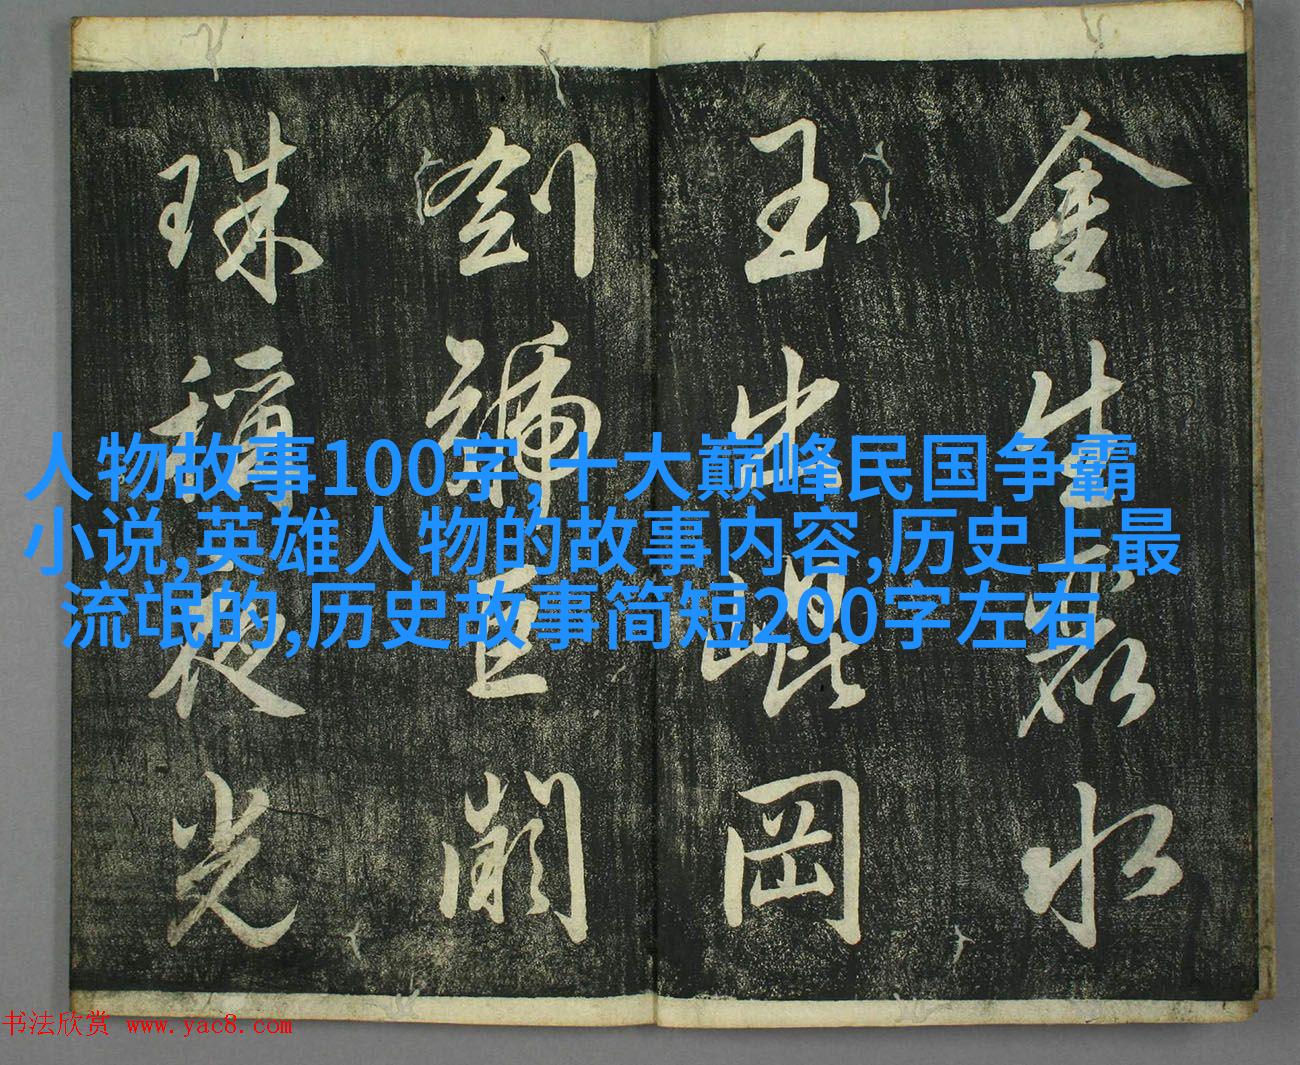 金生麗水
玉出崐岡
劍號巨闕
珠稱夜光
人物故事100字,十大巅峰民国争霸
小说,英雄人物的故事内容,历史上最
流氓的,历史故事简短200字左右
书法欣赏 www.yac8.com